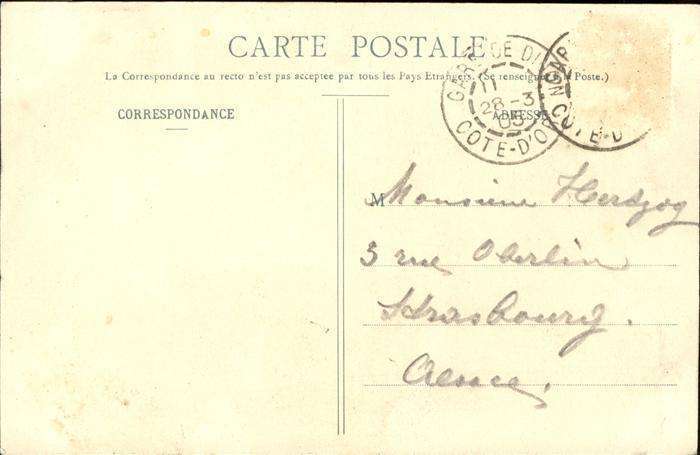 CARTE POSTALE
La Correspondance au recto n'est pas acceptée par tous les Pays Etrangers. (Se renseigner à la Poste.)
CORRESPONDANCE
ADRESSE
GARE DE DI
11
28-3
05
COTE-D'OR
GAR
COTE-D
Monsieur Hertzog
3 rue Oberlin
Strasbourg.
Alsace.